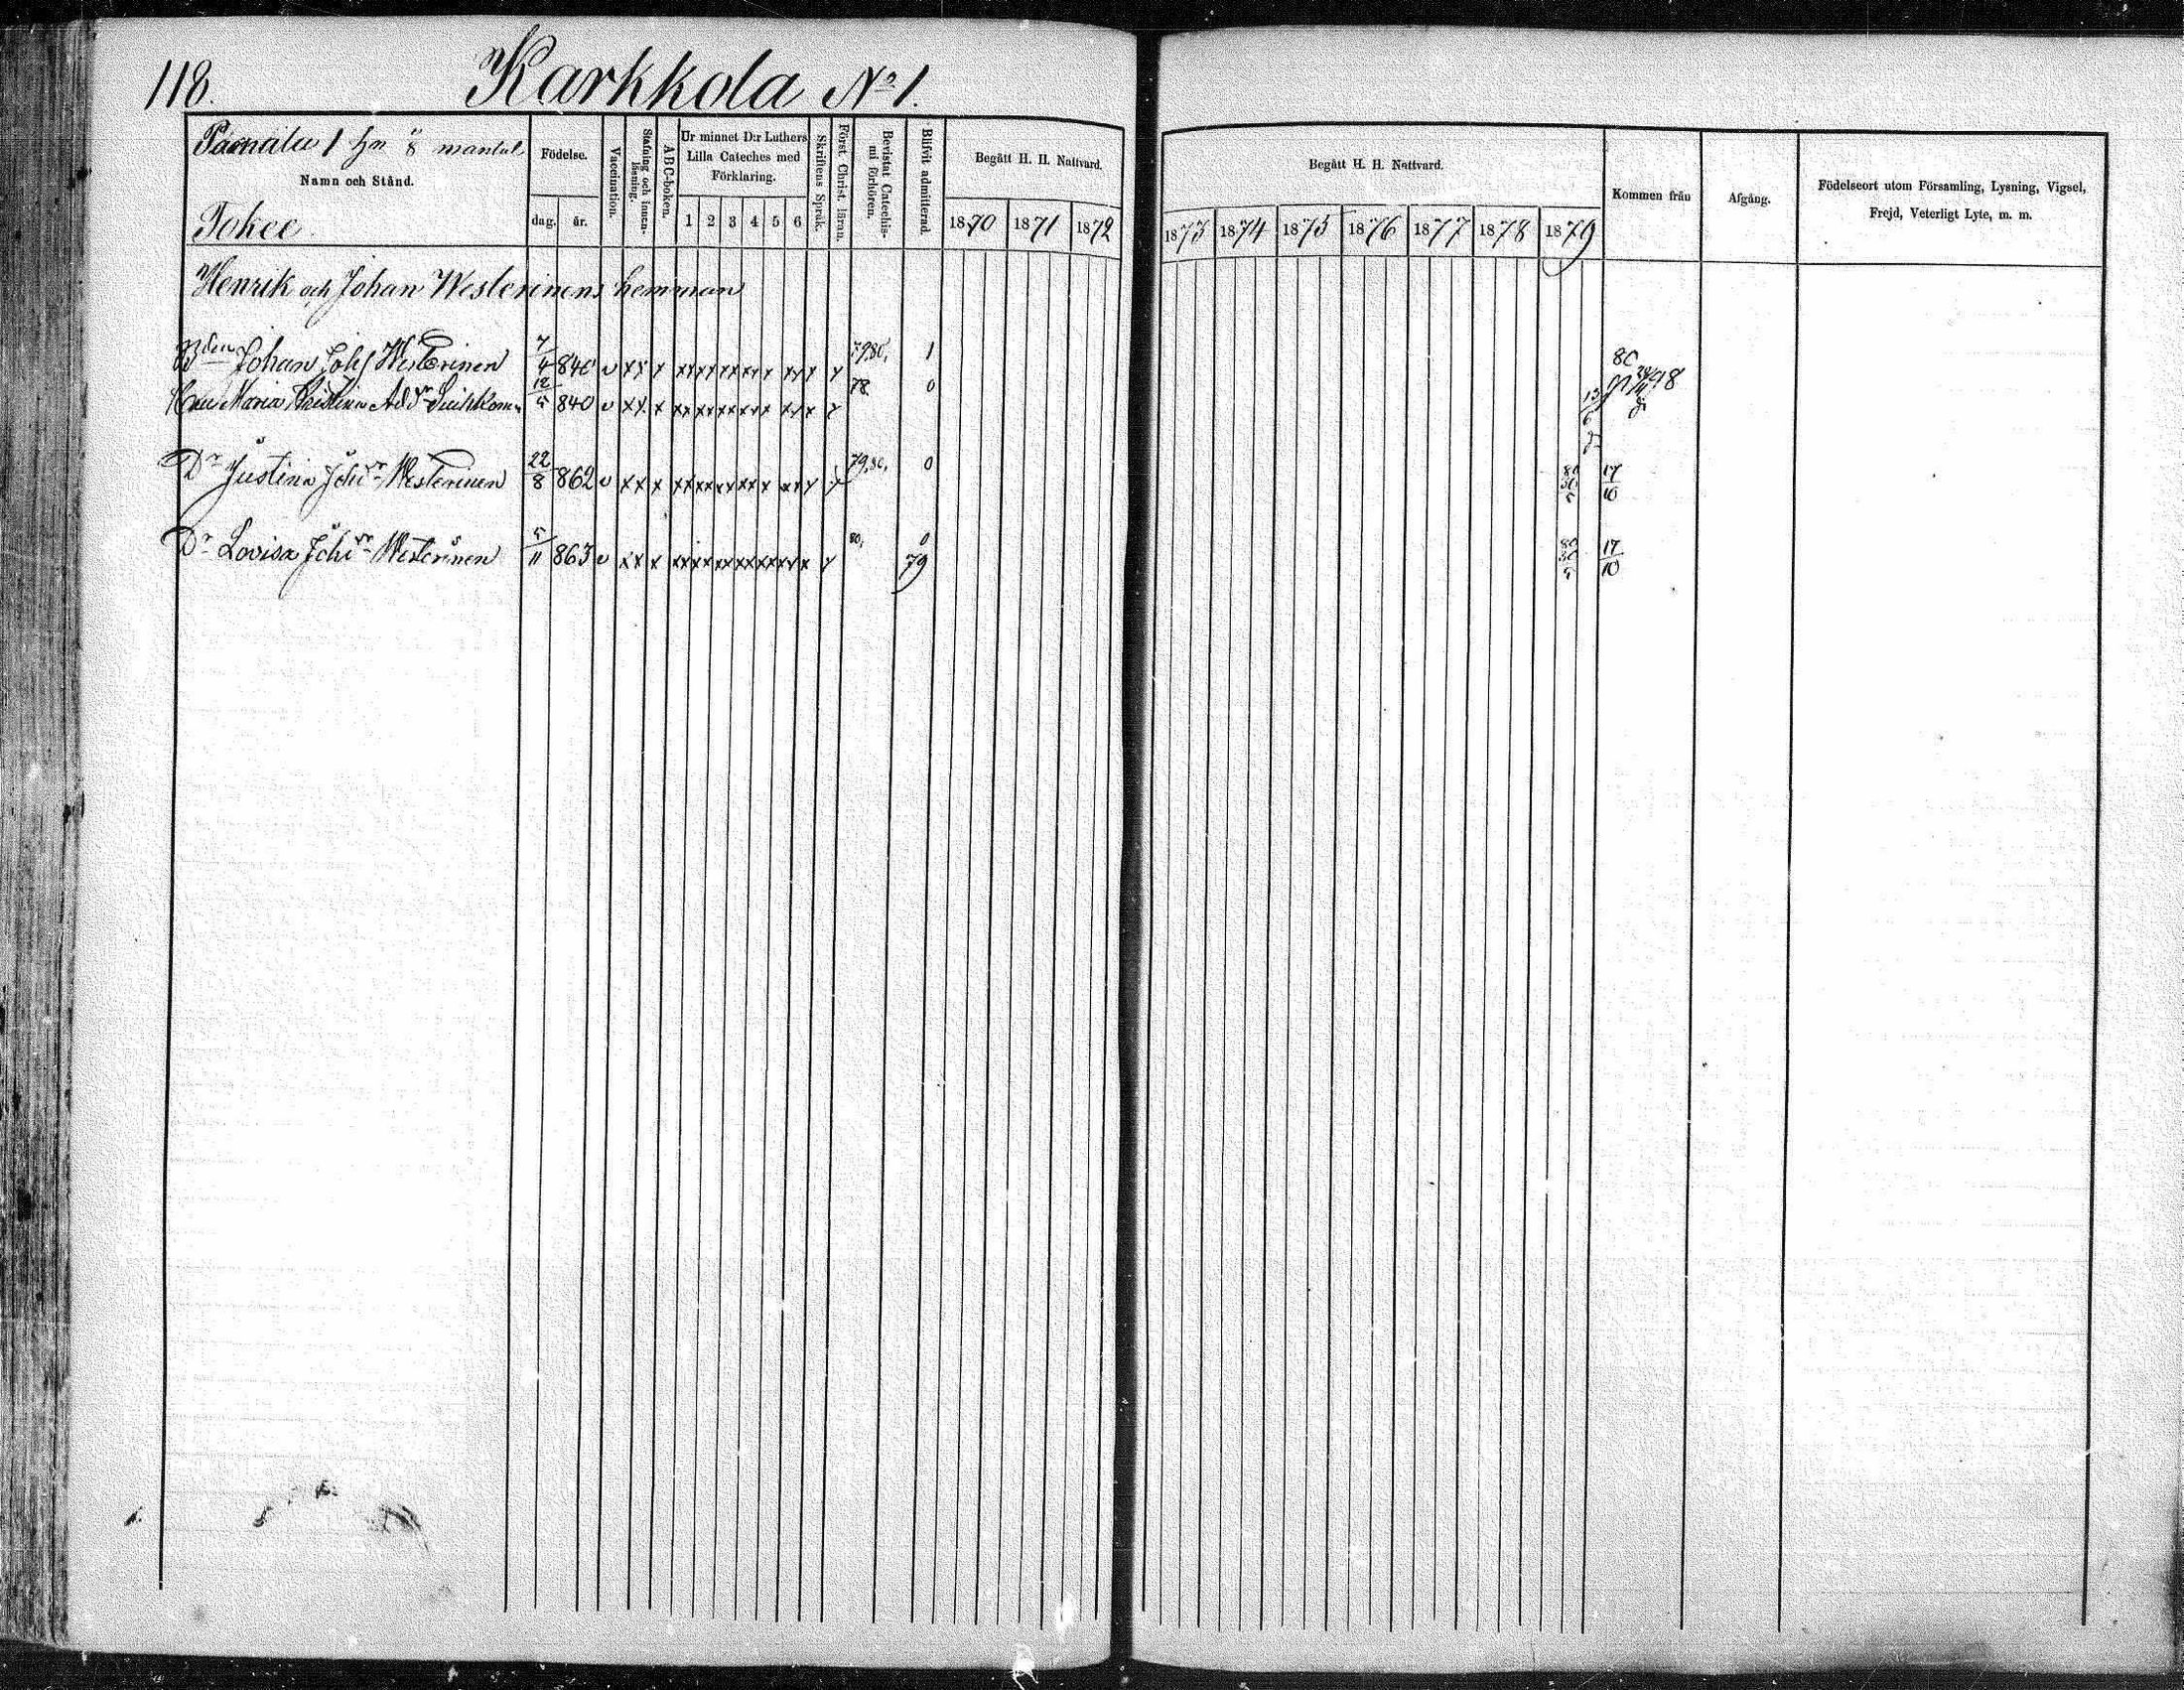 118.
Karkkola No 1.
1 hn 8 mantal
Namn och Stånd.
Tokee.
Födelse.
dag. år.
Vaccination.
Stafning och innanläsning.
ABC-boken.
Ur minnet D:r Luthers
Lilla Cateches med
Förklaring.
1 2 3 4 5 6
Skriftens Språk.
Först. Christ. läran.
Bevistat Catechismi förhören.
Blifvit admitterad
Begått H. H. Nattvard.
1870 1871 1872
Begått H. H. Nattvard.
1873 1874 1875 1876 1877 1878 1879
Kommen från
Afgång.
Födelseort utom Församling, Lysning, Vigsel,
Frejd, Veterligt Lyte, m. m.
Henrik och Johan Westerinens hemman
Bden Johan Johs Westerinen 7/4 840 v x x x x x x x x x x x x x x x 79,80, 1 80
Hu Maria Kristina Ad dr 12/5 840 v x x x x x x x x x x x x x x x 78 0 13/6 98
Dr Justina Joh dr Westerinen 22/8 862 v x x x x x x x x x x x x x x x 79,80, 0 80 30/5 17/10
Dr Lovisa Joh dr Westerinen 5/11 863 v x x x x x x x x x x x x x x x 80, 0 79 80 30/5 17/10